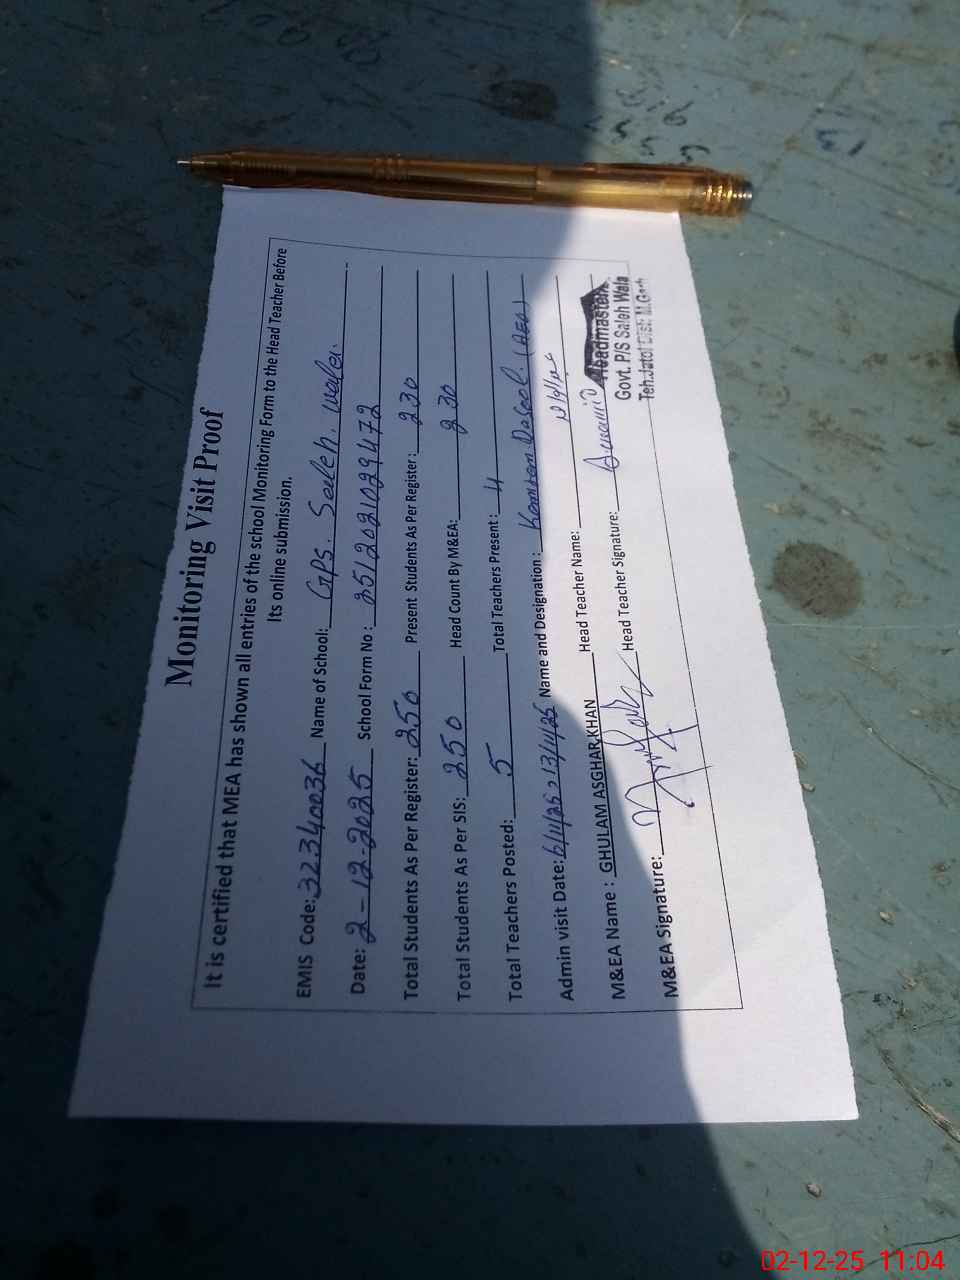 Monitoring Visit Proof
It is certified that MEA has shown all entries of the school Monitoring Form to the Head Teacher Before
Its online submission.
EMIS Code: 32340036 Name of School: GPS. Saleh. wala.
Date: 2-12-2025 School Form No: 3512021029472
Total Students As Per Register: 250 Present Students As Per Register: 230
Total Students As Per SIS: 250 Head Count By M&EA: 230
Total Teachers Posted: 5 Total Teachers Present: 4
Admin visit Date: 6/11/25, 13/11/25 Name and Designation: Kamran (AEO)
M&EA Name: GHULAM ASGHAR KHAN Head Teacher Name:
M&EA Signature: Head Teacher Signature:
Headmaster
Govt. P/S Saleh Wala
Teh. Jatoi Dist: M.Garh
02-12-25 11:04